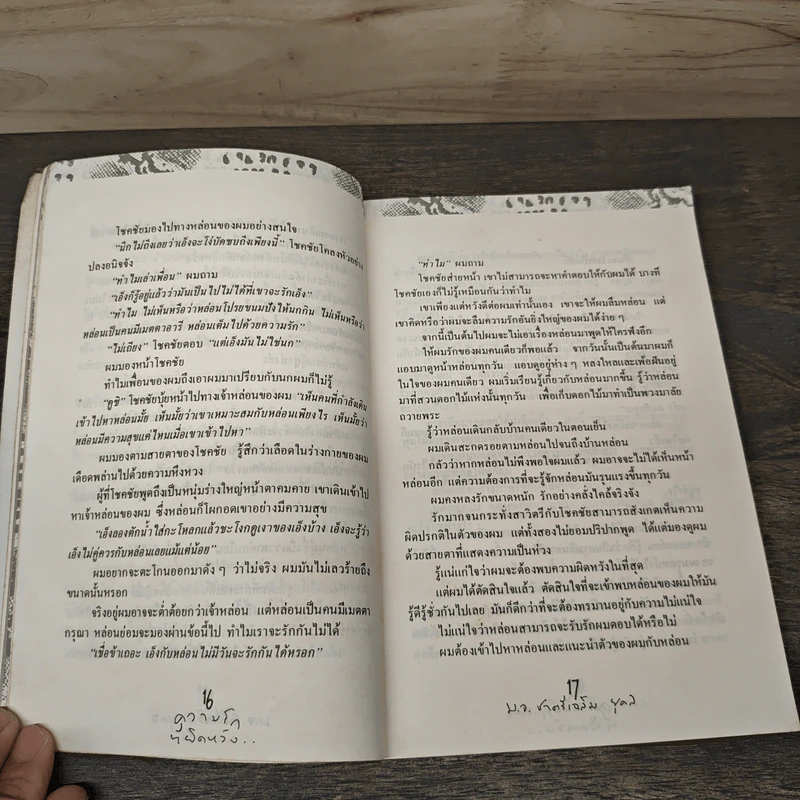 โชคชัยมองไปทางหล่อนของผมอย่างสนใจ
“นึกไม่ถึงเลยว่าเอ็งจะโง่บัดซบถึงเพียงนี้” โชคชัยโคลงหัวอย่าง
ปลงอนิจจัง
“ทำไมเล่าเพื่อน” ผมถาม
“เอ็งก็รู้อยู่แล้วว่ามันเป็นไปไม่ได้ที่เขาจะรักเอ็ง”
“ทำไม ไม่เห็นหรือว่าหล่อนโปรยขนมปังให้นกกิน ไม่เห็นหรือว่า
หล่อนเป็นคนมีเมตตาอารี หล่อนเต็มไปด้วยความรัก”
“ไม่เถียง” โชคชัยตอบ “แต่เอ็งมันไม่ใช่นก”
ผมมองหน้าโชคชัย
ทำไมเพื่อนของผมถึงเอาผมมาเปรียบกับนกผมก็ไม่รู้
“ดูซิ” โชคชัยบุ้ยหน้าไปทางเจ้าหล่อนของผม “เห็นคนที่กำลังเดิน
เข้าไปหาหล่อนมั้ย เห็นมั้ยว่าเขาเหมาะสมกับหล่อนเพียงไร เห็นมั้ยว่า
หล่อนมีความสุขแค่ไหนเมื่อเขาเข้าไปหา”
ผมมองตามสายตาของโชคชัย รู้สึกว่าเลือดในร่างกายของผม
เดือดพล่านไปด้วยความหึงหวง
ผู้ที่โชคชัยพูดถึงเป็นหนุ่มร่างใหญ่หน้าตาคมคาย เขาเดินเข้าไป
หาเจ้าหล่อนของผม ซึ่งหล่อนก็โผกอดเขาอย่างมีความสุข
“เอ็งลองตักน้ำใส่กะโหลกแล้วชะโงกดูเงาของเอ็งบ้าง เอ็งจะรู้ว่า
เอ็งไม่คู่ควรกับหล่อนเลยแม้แต่น้อย”
ผมอยากจะตะโกนออกมาดัง ๆ ว่าไม่จริง ผมมันไม่เลวร้ายถึง
ขนาดนั้นหรอก
จริงอยู่ผมอาจจะต่ำต้อยกว่าเจ้าหล่อน แต่หล่อนเป็นคนมีเมตตา
กรุณา หล่อนย่อมจะมองผ่านข้อนี้ไป ทำไมเราจะรักกันไม่ได้
“เชื่อข้าเถอะ เอ็งกับหล่อนไม่มีวันจะรักกันได้หรอก”
16
ความรัก
ที่ผิดหวัง..
“ทำไม” ผมถาม
โชคชัยส่ายหน้า เขาไม่สามารถจะหาคำตอบให้กับผมได้ บางที
โชคชัยเองก็ไม่รู้เหมือนกันว่าทำไม
เขาเพียงแต่หวังดีต่อผมเท่านั้นเอง เขาจะให้ผมลืมหล่อน แต่
เขาคิดหรือว่าผมจะลืมความรักอันยิ่งใหญ่ของผมได้ง่าย ๆ
จากนี้เป็นต้นไปผมจะไม่เอาเรื่องหล่อนมาพูดให้ใครฟังอีก
ให้ผมรักของผมคนเดียวก็พอแล้ว จากวันนั้นเป็นต้นมาผมก็
แอบมาดูหน้าหล่อนทุกวัน แอบดูอยู่ห่าง ๆ หลงใหลและเพ้อฝันอยู่
ในใจของผมคนเดียว ผมเริ่มเรียนรู้เกี่ยวกับหล่อนมากขึ้น รู้ว่าหล่อน
มาที่สวนดอกไม้แห่งนั้นทุกวัน เพื่อเก็บดอกไม้มาทำเป็นพวงมาลัย
ถวายพระ
รู้ว่าหล่อนเดินกลับบ้านคนเดียวในตอนเย็น
ผมเดินสะกดรอยตามหล่อนไปจนถึงบ้านหล่อน
กลัวว่าหากหล่อนไม่พึงพอใจผมแล้ว ผมอาจจะไม่ได้เห็นหน้า
หล่อนอีก แต่ความต้องการที่จะรู้จักหล่อนมันรุนแรงขึ้นทุกวัน
ผมคงหลงรักขนาดหนัก รักอย่างคลั่งไคล้จริงจัง
รักมากจนกระทั่งสาวิตรีกับโชคชัยสามารถสังเกตเห็นความ
ผิดปรกติในตัวของผม แต่ทั้งสองไม่ยอมปริปากพูด ได้แต่มองดูผม
ด้วยสายตาที่แสดงความเป็นห่วง
รู้แน่แก่ใจว่าผมจะต้องพบความผิดหวังในที่สุด
แต่ผมได้ตัดสินใจแล้ว ตัดสินใจที่จะเข้าพบหล่อนของผมให้มัน
รู้ดีรู้ชั่วกันไปเลย มันก็ดีกว่าที่จะต้องทรมานอยู่กับความไม่แน่ใจ
ไม่แน่ใจว่าหล่อนสามารถจะรับรักผมตอบได้หรือไม่
ผมต้องเข้าไปหาหล่อนและแนะนำตัวของผมกับหล่อน
17
ม.จ. ชาตรีเฉลิม ยุคล